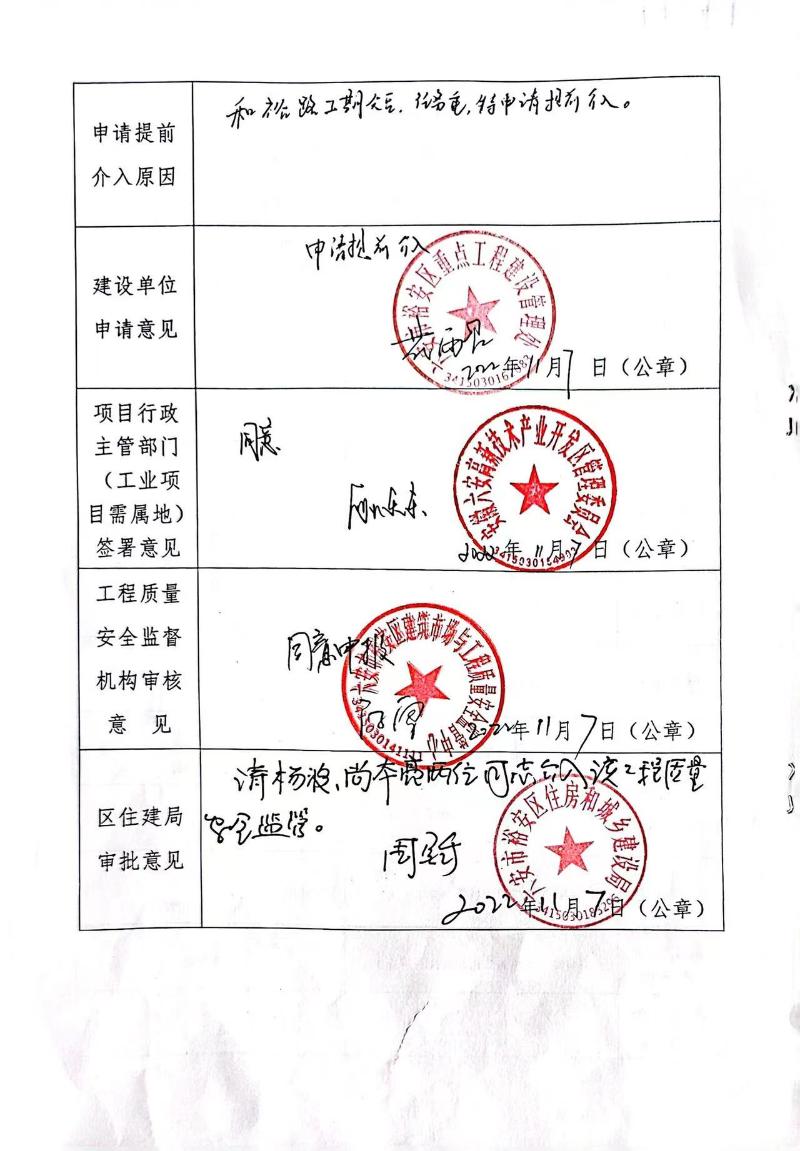 申请提前
介入原因
和裕路工期短、任务重,特申请提前介入。
建设单位
申请意见
申请提前介入
六安市裕安区重点工程建设管理处
2022年11月7日(公章)
项目行政
主管部门
(工业项
目需属地)
签署意见
同意
安徽六安高新技术产业开发区管理委员会
2022年11月7日(公章)
工程质量
安全监督
机构审核
意 见
同意申报
六安市裕安区建筑市场与工程质量安全监管中心
2022年11月7日(公章)
区住建局
审批意见
请杨波、尚本亮两位同志介入该工程质量
安全监管。
六安市裕安区住房和城乡建设局
2022年11月7日(公章)